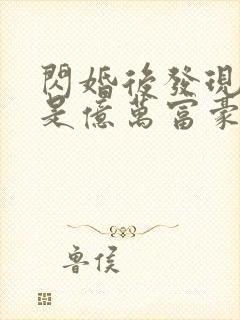 閃婚後發現
是億萬富豪
魯侯